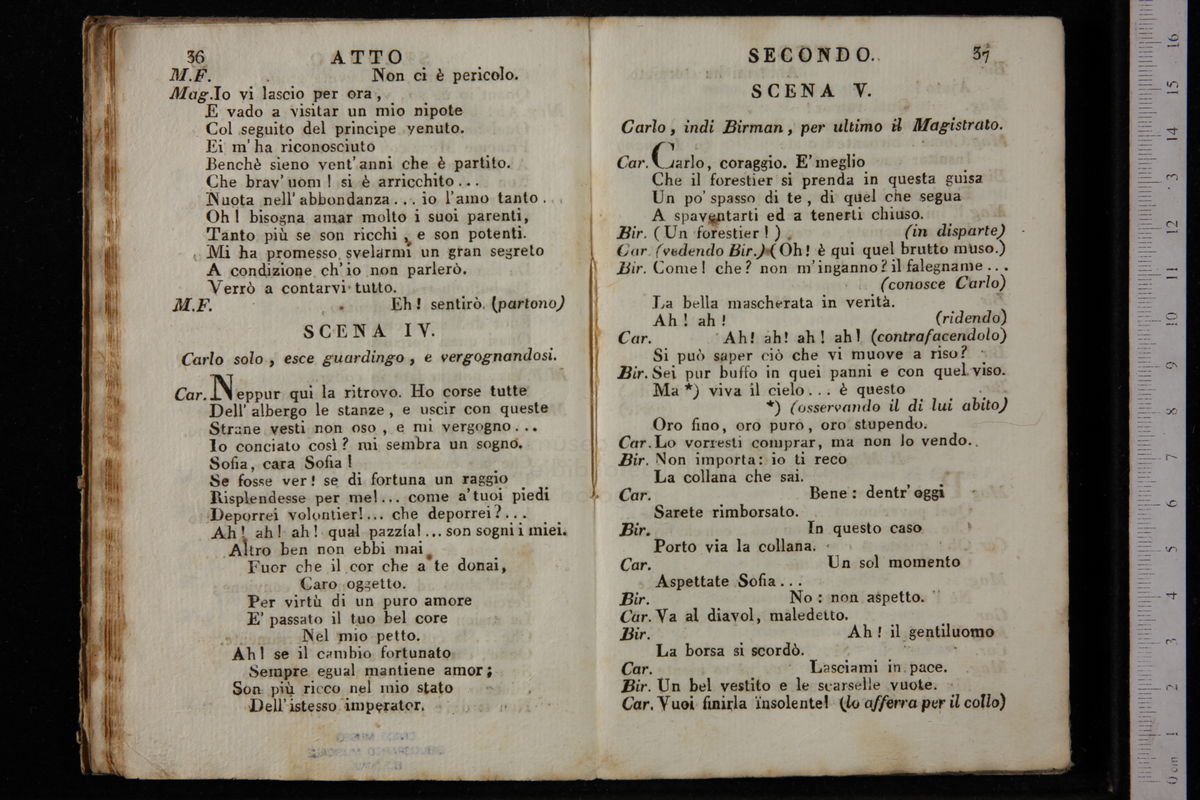 36 ATTO
M.F. Non ci è pericolo.
Mag. Io vi lascio per ora,
E vado a visitar un mio nipote
Col seguito del principe venuto.
Ei m'ha riconosciuto
Benchè sieno vent'anni che è partito.
Che brav'uom! si è arricchito...
Nuota nell'abbondanza... io l'amo tanto...
Oh! bisogna amar molto i suoi parenti,
Tanto più se son ricchi, e son potenti.
Mi ha promesso svelarmi un gran segreto
A condizione ch'io non parlerò.
Verrò a contarvi tutto.
M.F. Eh! sentirò. (partono)
SCENA IV.
Carlo solo, esce guardingo, e vergognandosi.
Car. Neppur qui la ritrovo. Ho corse tutte
Dell'albergo le stanze, e uscir con queste
Strane vesti non oso, e mi vergogno...
Io conciato così? mi sembra un sogno.
Sofia, cara Sofia!
Se fosse ver! se di fortuna un raggio
Risplendesse per me!... come a'tuoi piedi
Deporrei volontier!... che deporrei?...
Ah! ah! ah! qual pazzía!... son sogni i miei.
Altro ben non ebbi mai
Fuor che il cor che a te donai,
Caro oggetto.
Per virtù di un puro amore
E' passato il tuo bel core
Nel mio petto.
Ah! se il cambio fortunato
Sempre egual mantiene amor;
Son più ricco nel mio stato
Dell'istesso imperator.
SECONDO. 37
SCENA V.
Carlo, indi Birman, per ultimo il Magistrato.
Car. Carlo, coraggio. E'meglio
Che il forestier si prenda in questa guisa
Un po'spasso di te, di quel che segua
A spaventarti ed a tenerti chiuso.
Bir. (Un forestier!) (in disparte)
Car. (vedendo Bir.) (Oh! è qui quel brutto muso.)
Bir. Come! che? non m'inganno? il falegname...
(conosce Carlo)
La bella mascherata in verità.
Ah! ah! (ridendo)
Car. Ah! ah! ah! ah! (contrafacendolo)
Si può saper ciò che vi muove a riso?
Bir. Sei pur buffo in quei panni e con quel viso.
Ma *) viva il cielo... è questo
*) (osservando il di lui abito)
Oro fino, oro puro, oro stupendo.
Car. Lo vorresti comprar, ma non lo vendo.
Bir. Non importa: io ti reco
La collana che sai.
Car. Bene: dentr'oggi
Sarete rimborsato.
Bir. In questo caso
Porto via la collana.
Car. Un sol momento
Aspettate Sofia...
Bir. No: non aspetto.
Car. Va al diavol, maledetto.
Bir. Ah! il gentiluomo
La borsa si scordò.
Car. Lasciami in pace.
Bir. Un bel vestito e le scarselle vuote.
Car. Vuoi finirla insolente! (lo afferra per il collo)
0 cm 1 2 3 4 5 6 7 8 9 10 11 12 13 14 15 16